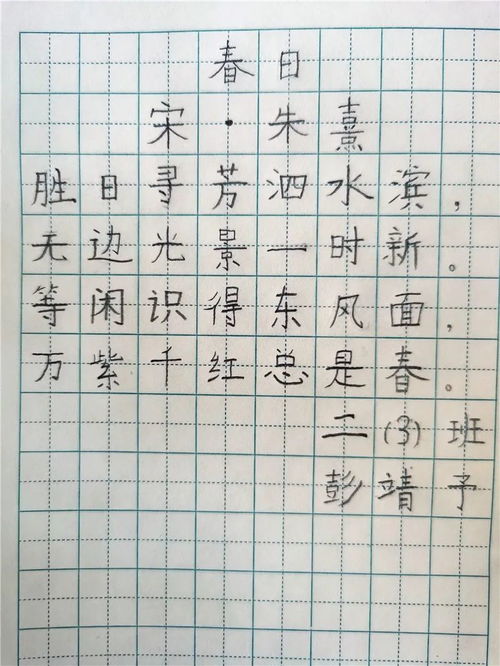 春日
宋·朱熹
胜日寻芳泗水滨，
无边光景一时新。
等闲识得东风面，
万紫千红总是春。
二(3)班
彭靖予